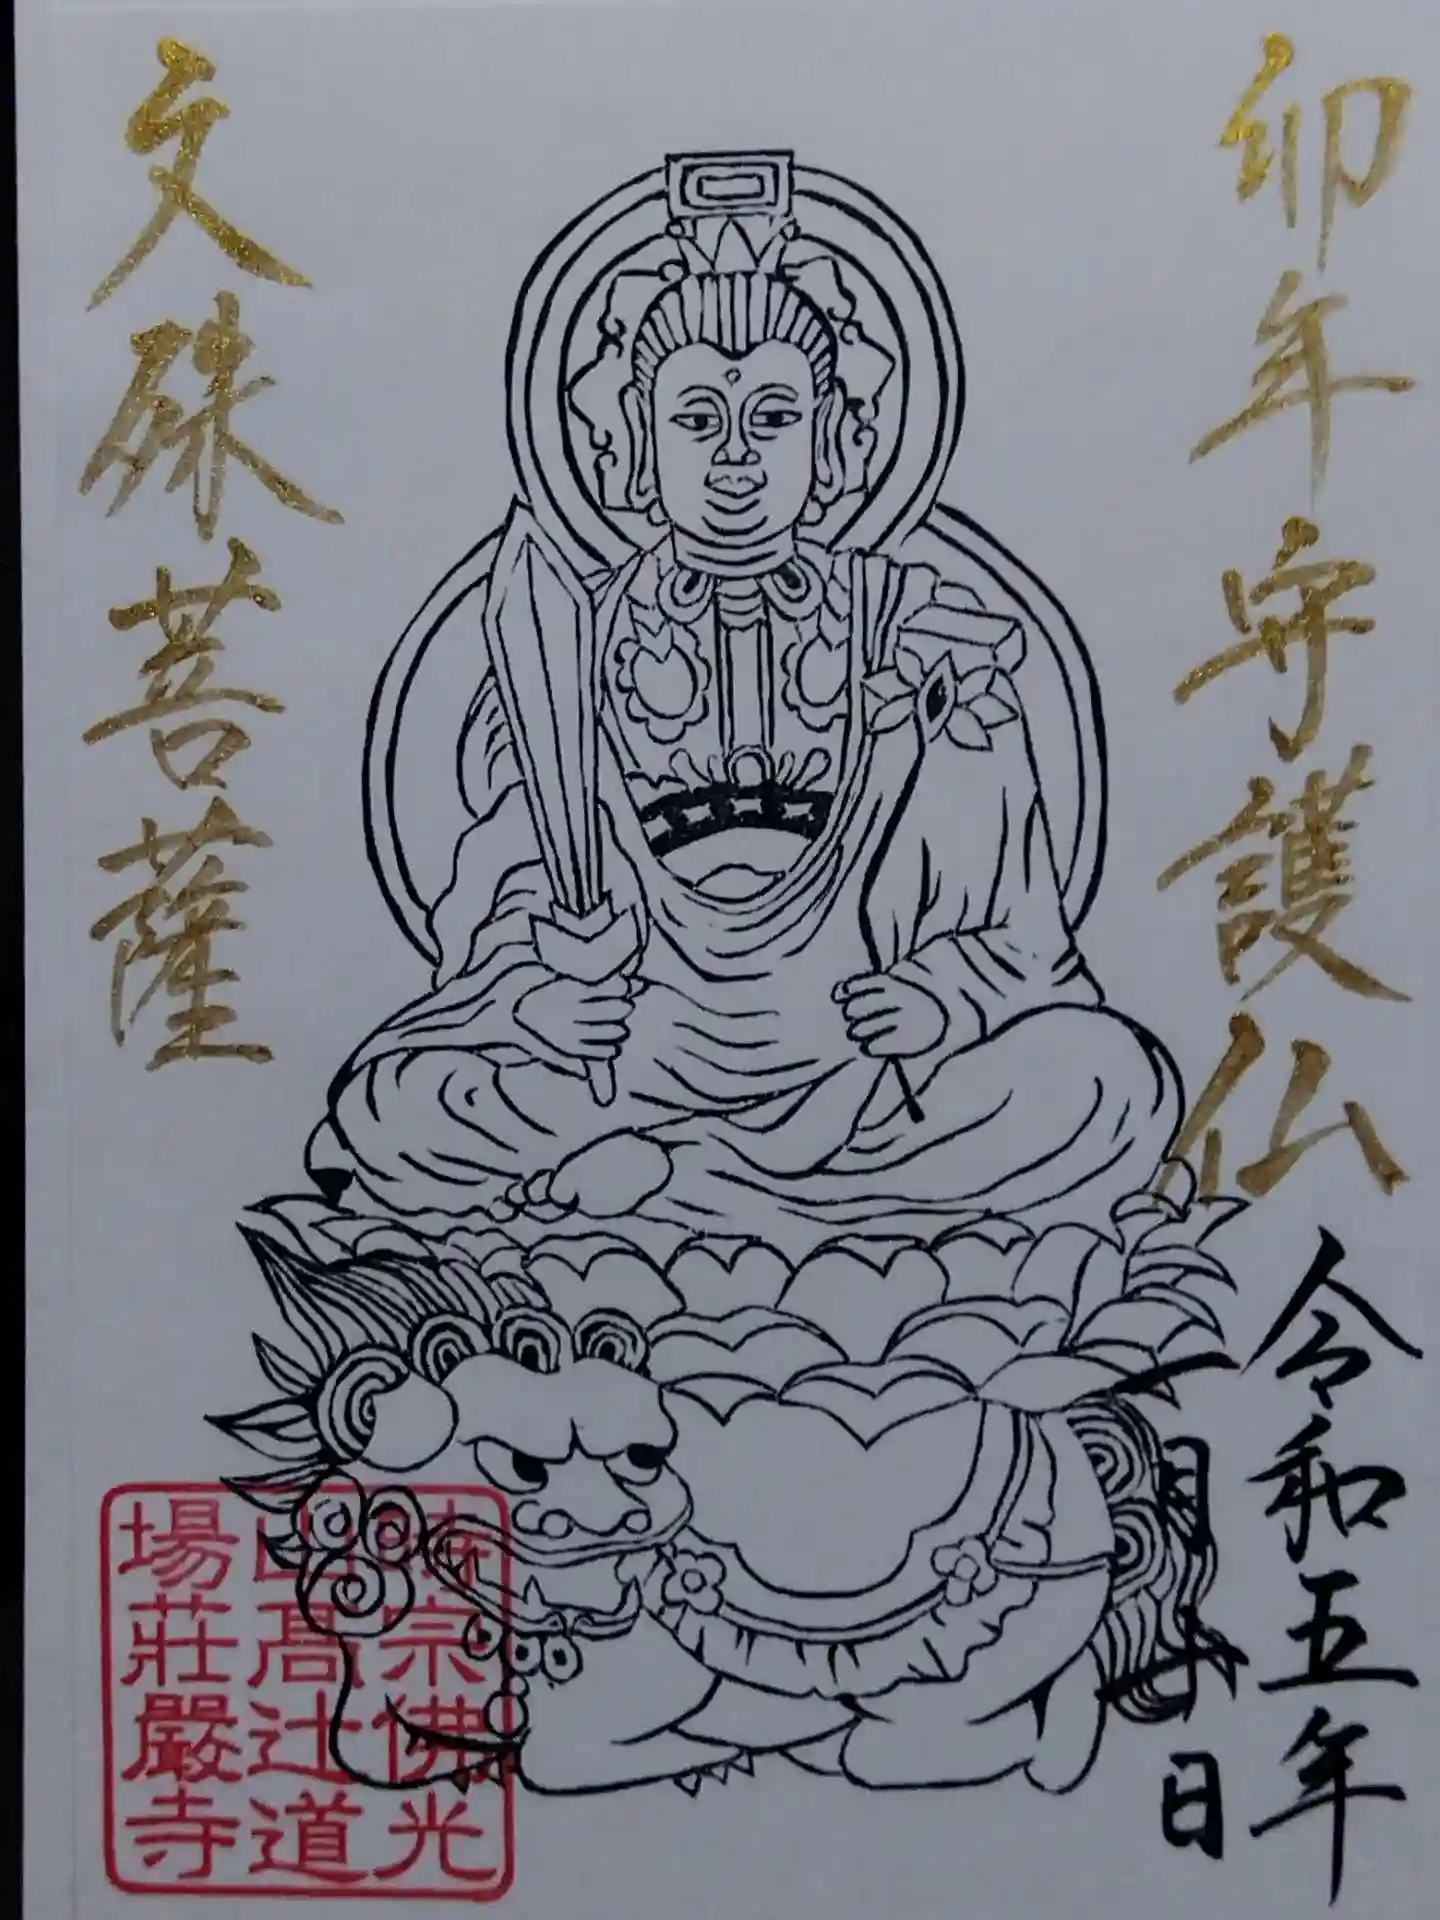 卯年守護仏
令和五年
一月十日
文殊菩薩
時宗佛光
山高辻道
場莊嚴寺